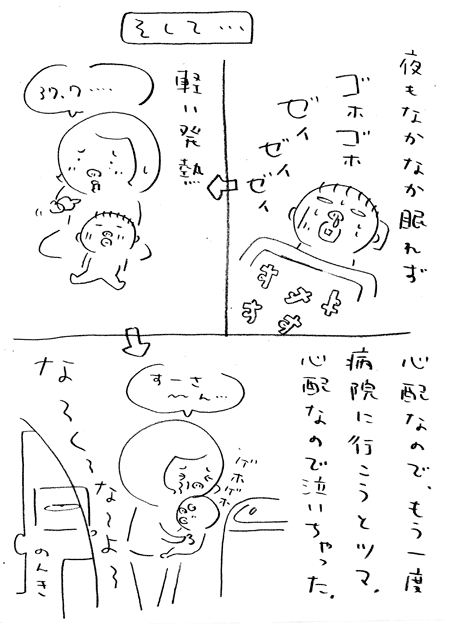 そして・・・
夜もなかなか眠れず
ゴホゴホ
ゼィ
ゼィ
ゼィ
軽い発熱
37.7・・・・
心配なので、もう一度
病院に行こうとツマ。
心配なので泣いちゃった。
すーさ
〜ん…
ゲホ
ゲホ
な〜く〜
な〜よ〜
のんき